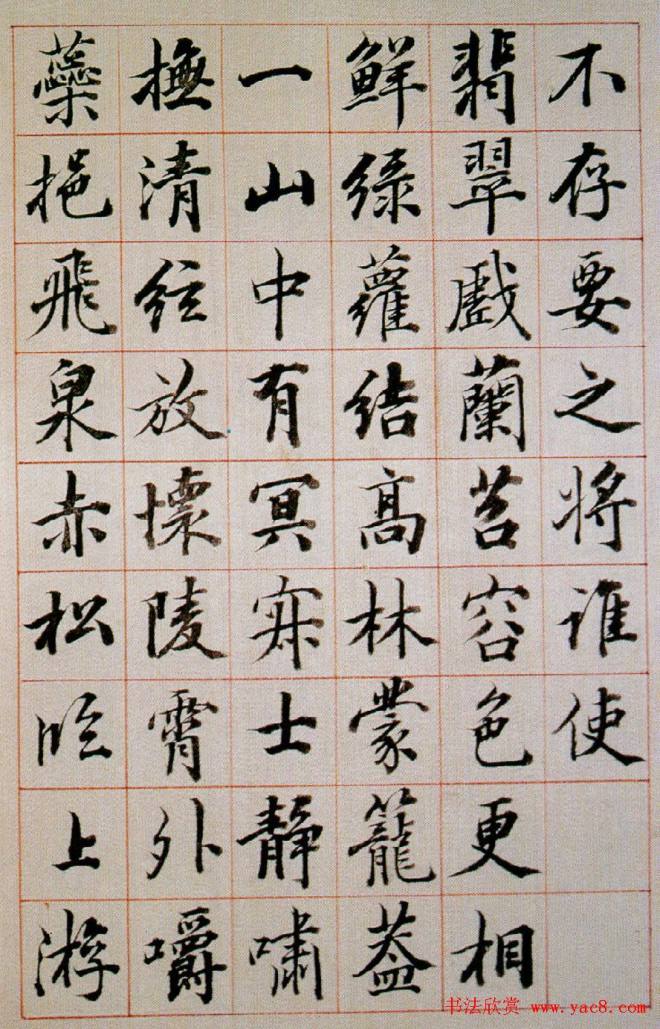 不存要之将誰使
翡翠戲蘭苕容色更相
鮮綠蘿結髙林蒙籠蓋
一山中有冥寂士靜嘯
撫清絃放懷陵霄外嚼
蘂挹飛泉赤松臨上游
书法欣赏 www.yac8.com